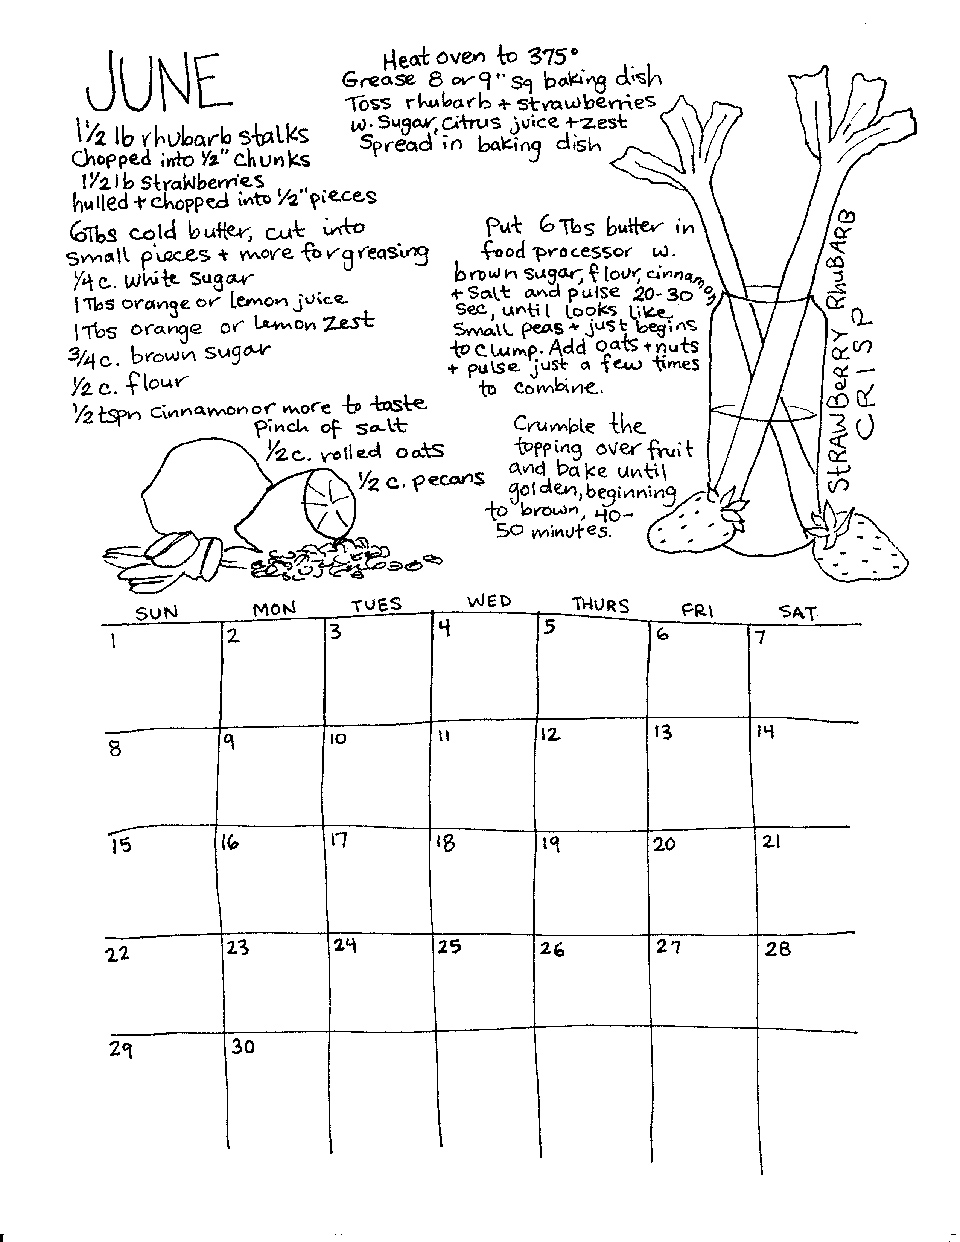 JUNE
1 1/2 lb rhubarb stalks
Chopped into 1/2" chunks
1 1/2 lb strawberries
hulled + chopped into 1/2" pieces
6Tbs cold butter, cut into
small pieces + more for greasing
1/4 c. white sugar
1 Tbs orange or lemon juice
1 Tbs orange or lemon zest
3/4 c. brown sugar
1/2 c. flour
1/2 tspn cinnamon or more to taste
pinch of salt
1/2 c. rolled oats
1/2 c. pecans
Heat oven to 375°
Grease 8 or 9" sq baking dish
Toss rhubarb + strawberries
w. sugar, citrus juice + zest
Spread in baking dish
Put 6 Tbs butter in
food processor w.
brown sugar, flour, cinnamon
+ salt and pulse 20-30
sec, until looks like
small peas + just begins
to clump. Add oats + nuts
+ pulse just a few times
to combine.
Crumble the
topping over fruit
and bake until
golden, beginning
to brown, 40-
50 minutes.
STRAWBERRY RHUBARB
CRISP
SUN MON TUES WED THURS FRI SAT
1 2 3 4 5 6 7
8 9 10 11 12 13 14
15 16 17 18 19 20 21
22 23 24 25 26 27 28
29 30